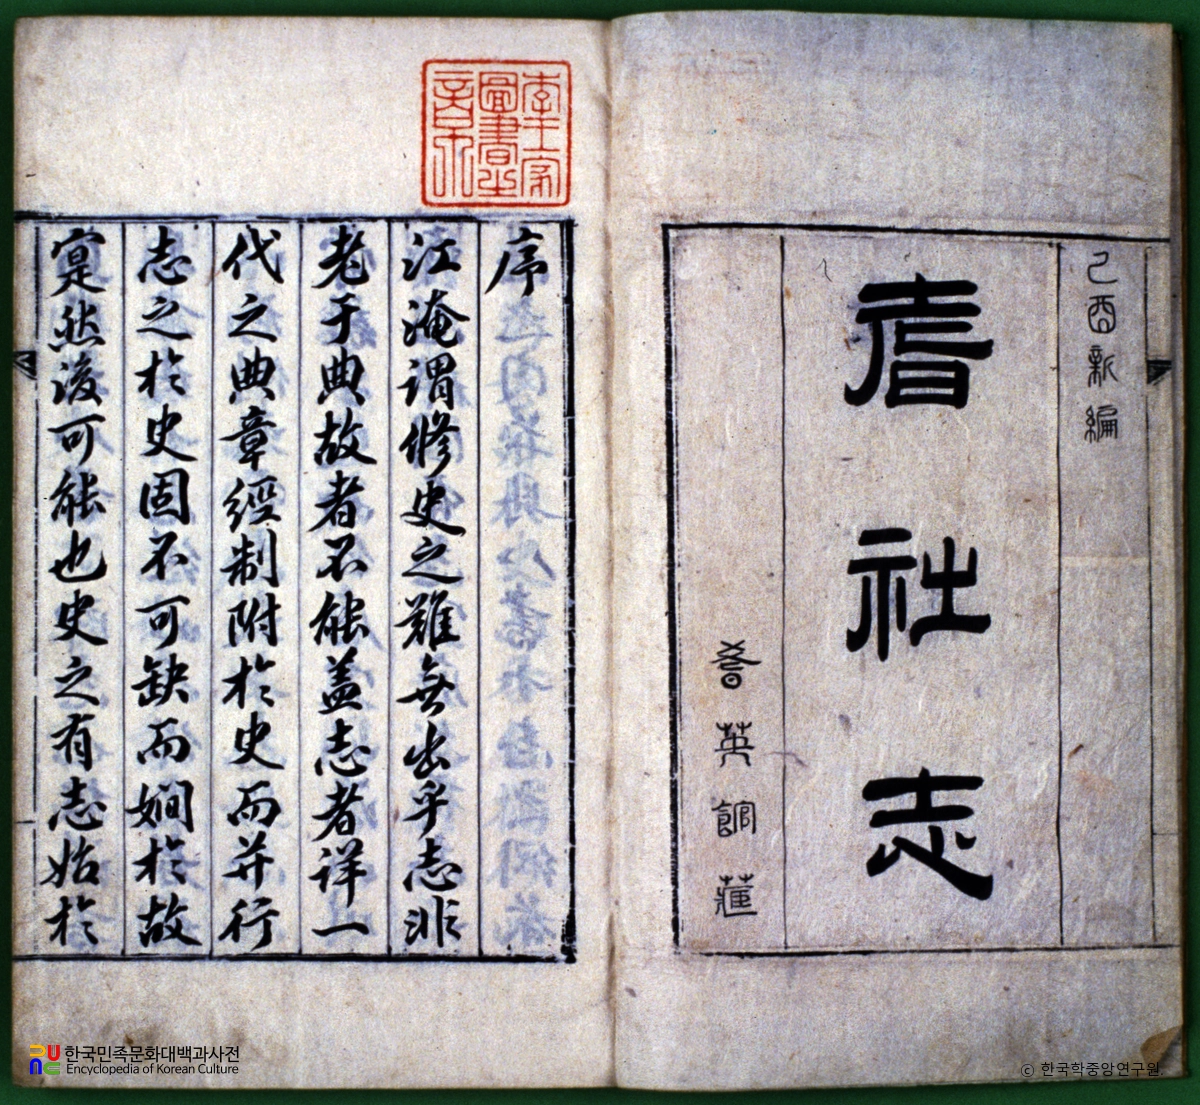 己酉新編
耆社志
耆英館藏
李王家
圖書之
章
序
江淹謂修史之難無出乎志非
老于典故者不能盖志者詳一
代之典章經制附於史而并行
志之於史固不可缺而嫺於故
寔然後可能也史之有志始於
한국민족문화대백과사전
Encyclopedia of Korean Culture
© 한국학중앙연구원.